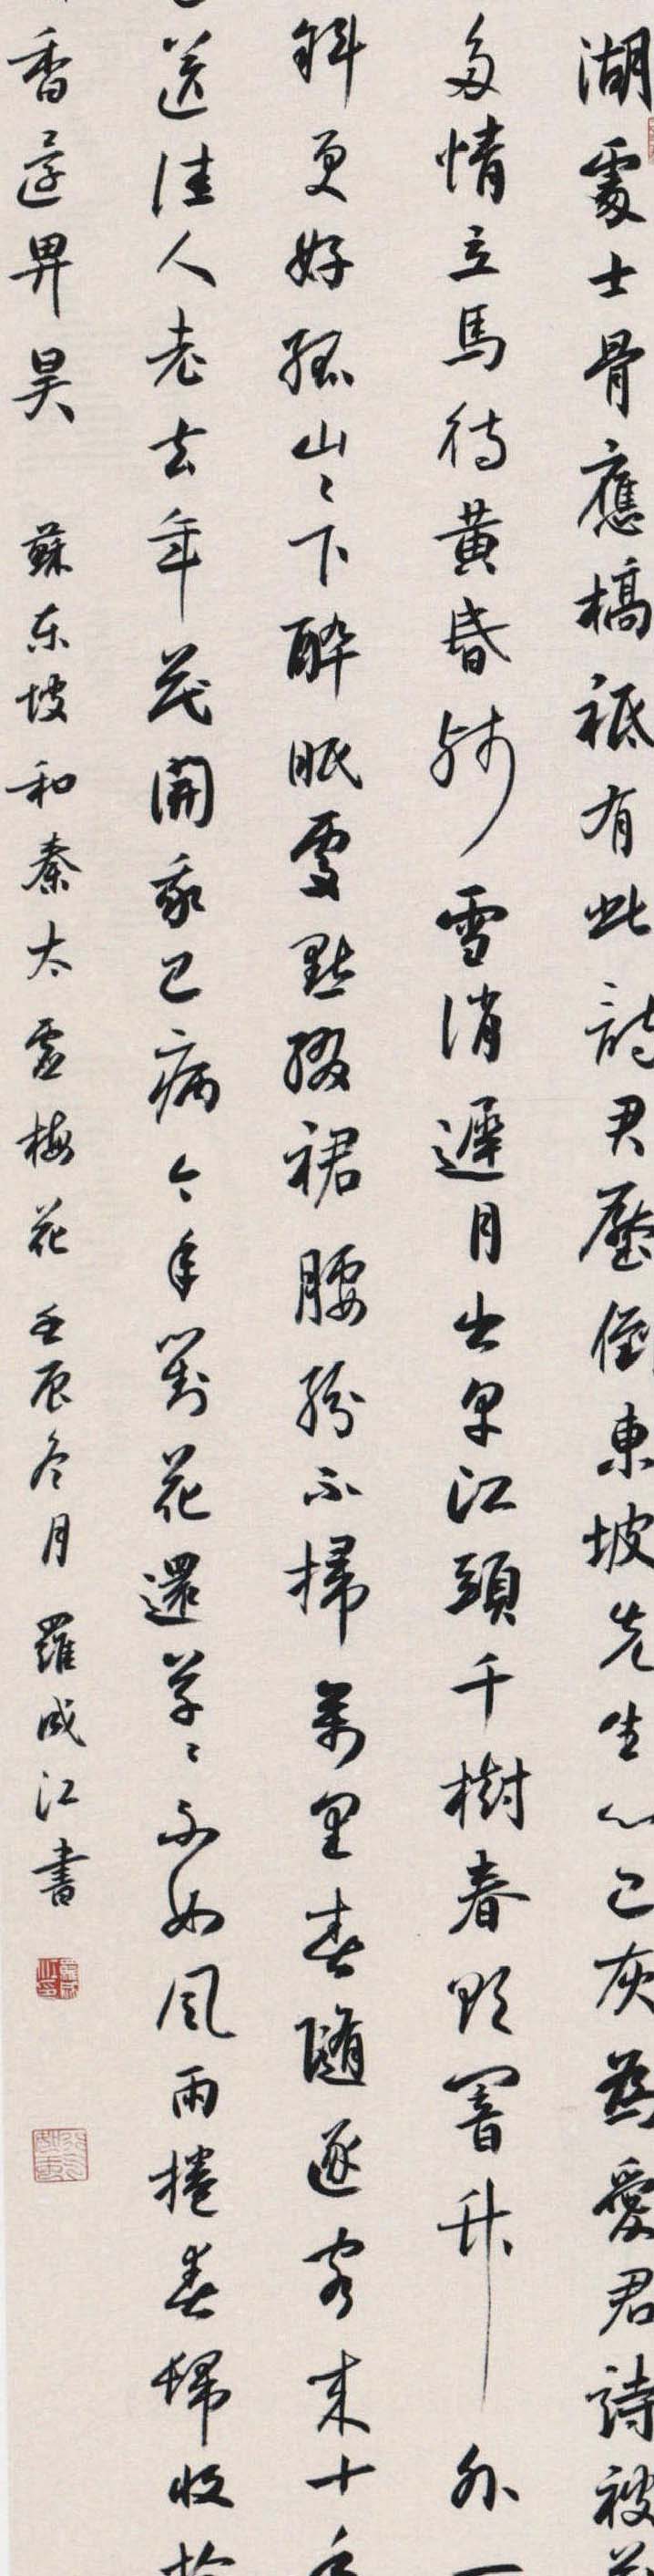 湖處士骨應槁祗有此詩君壓倒東坡先生心已灰為愛君詩被
多情立馬待黃昏殘雪消遲月出早江頭千樹春欲闇竹外一
斜更好孤山々下醉眠處點綴裙腰紛不掃萬里春隨逐客來十年
送佳人老去年花開我已病今年對花還草々不如風雨捲春歸收拾
香還畀昊 蘇東坡和秦太虛梅花 壬辰冬月 羅成江書